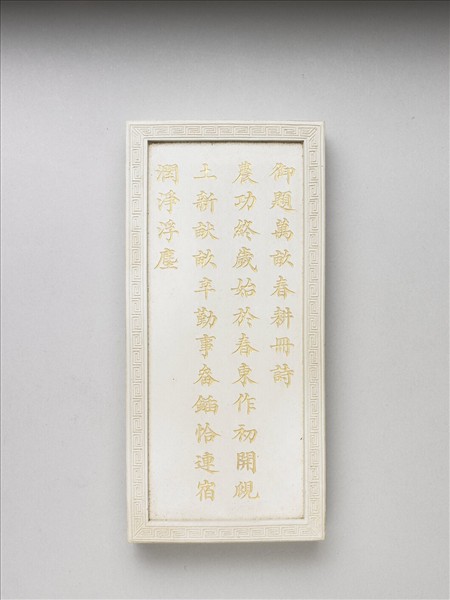 御題萬畝春耕冊詩
農功終歲始於春東作初開覛
土新畎畝卒勤事畚鍤恰連宿
潤淨浮塵